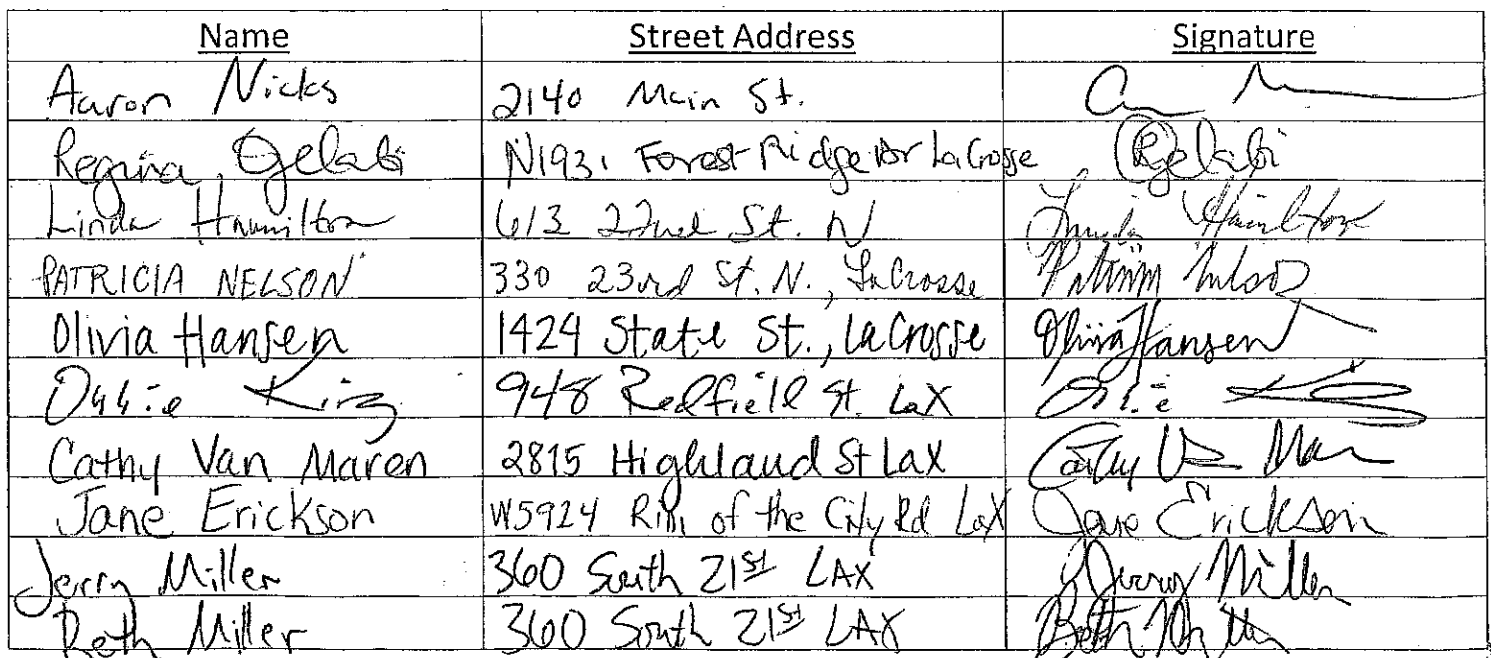 Name Street Address Signature
Aaron Nicks 2140 Main St.
Regina Gelabi N1931 Forest Ridge Dr LaCrosse RGelabi
Linda Hamilton 613 22nd St. N Linda Hamilton
PATRICIA NELSON 330 23rd St. N., LaCrosse Patricia Nelson
Olivia Hansen 1424 State St., LaCrosse Olivia Hansen
Ossie King 948 Redfield St. LaX Ossie King
Cathy Van Maren 2815 Highland St LaX Cathy Van Mar
Jane Erickson W5924 Rim of the City Rd LaX Jane Erickson
Jerry Miller 360 South 21st LAX Jerry Miller
Beth Miller 360 South 21st LAX Beth Miller